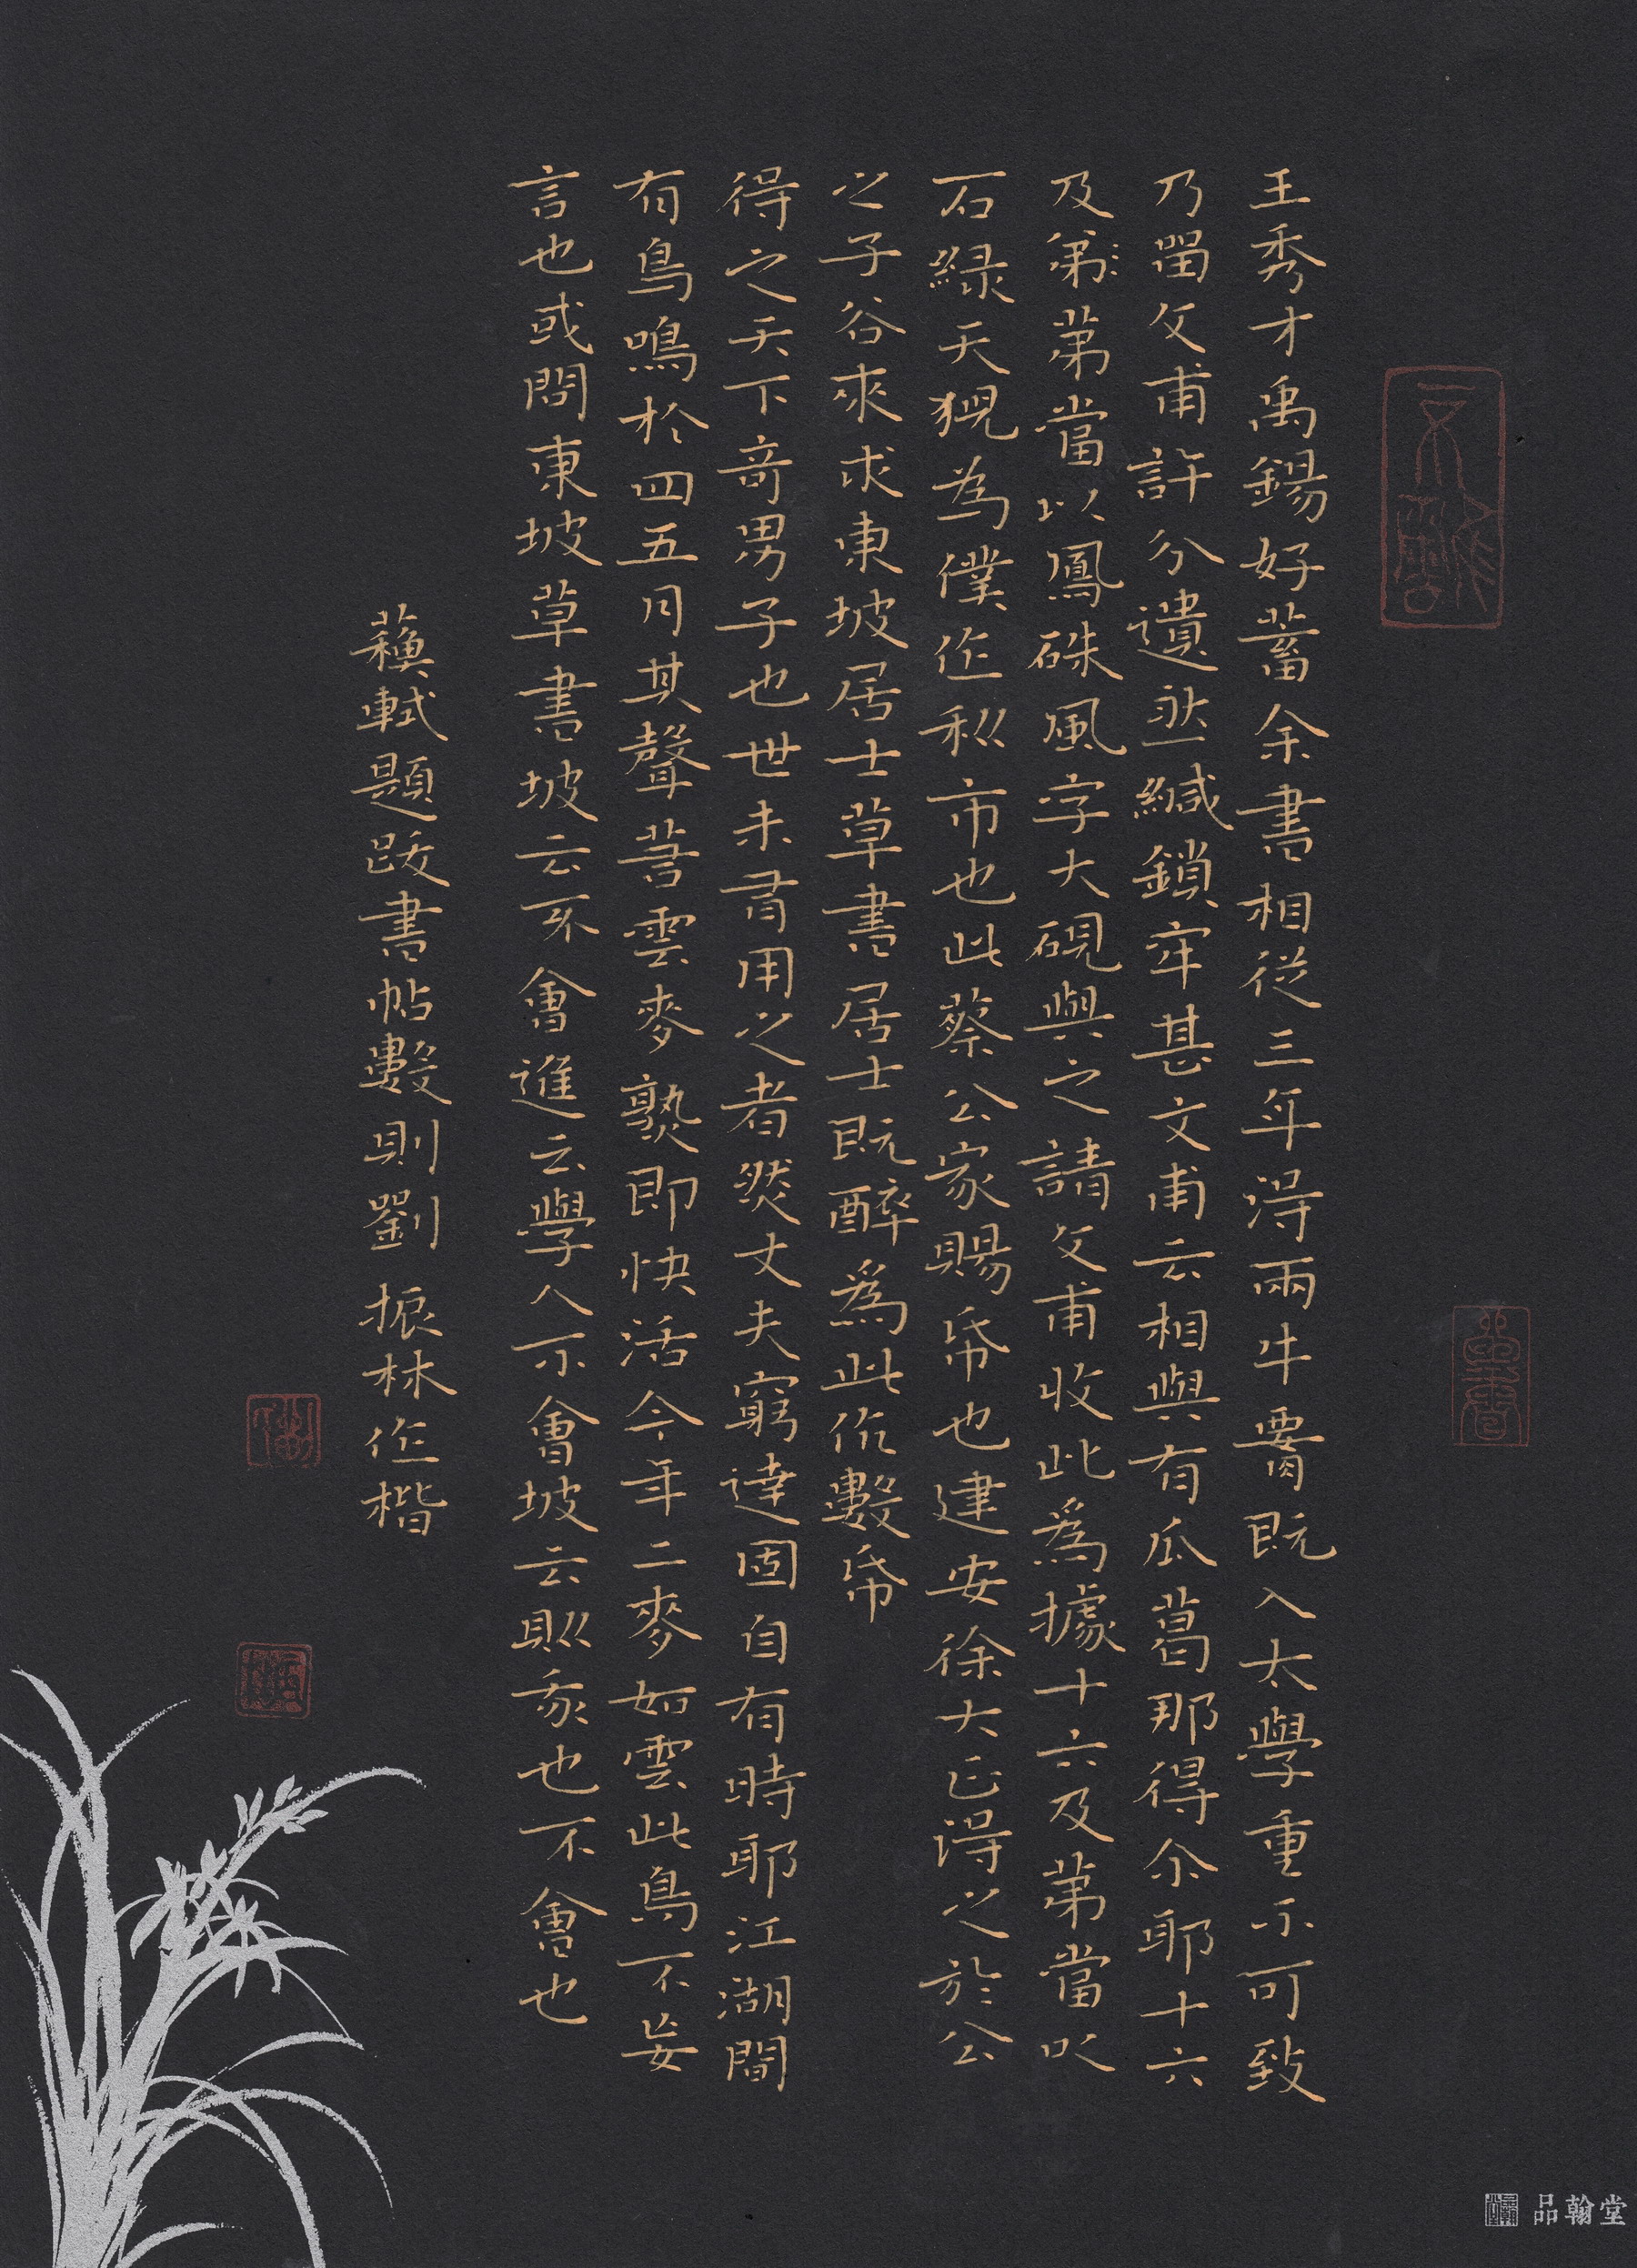 王秀才禹錫好蓄余書相從三年得兩牛䚻既入太學重不可致
乃留文甫許分遺然緘鎖牢甚文甫云相與有瓜葛那得尒耶十六
及弟弟當以鳳硃風字大硯與之請文甫收此為據十六及弟當以
石綠天猊為僕作秋市也此蔡公家賜帋也建安徐大正得之於公
之子谷來求東坡居士草書居士既醉為此作數帋
得之天下奇男子也世未有用之者然丈夫窮達固自有時耶江湖間
有鳥鳴於四五月其聲若雲麥熟即快活今年二麥如雲此鳥不妄
言也或問東坡草書坡云不會進云學人不會坡云則我也不會也
蘇軾題跋書帖數則劉振林作楷
品翰堂